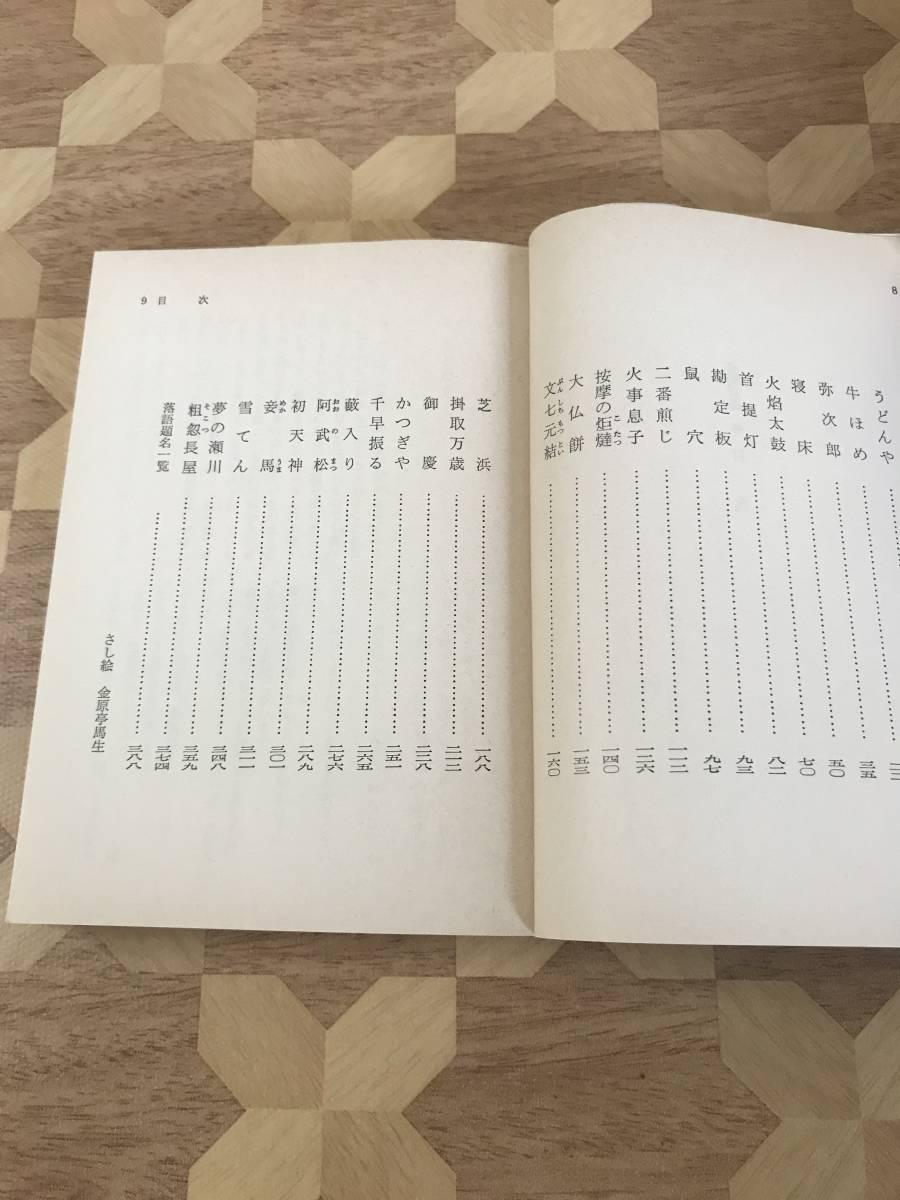 8
うどんや
牛ほめ……二三
弥次郎……三五
寝床……五〇
火焰太鼓……七〇
首提灯……八二
勘定板……九三
鼠穴……九七
二番煎じ……一一二
火事息子……一二六
按摩の炬燵……一四〇
こたつ
大仏餅……一五三
文七元結……一六〇
ぶんしちもっとい
9 目次
芝浜……一八八
掛取万歳……二一二
御慶……二二八
かつぎや……二五一
千早振る……二六五
藪入り……二七六
阿武松……二八九
おおのまつ
初天神……三〇一
妾馬……三一一
めかうま
雪てん……三四八
夢の瀬川……三五九
粗忽長屋……三七四
そこつ
落語題名一覧……三八八
さし絵 金原亭馬生